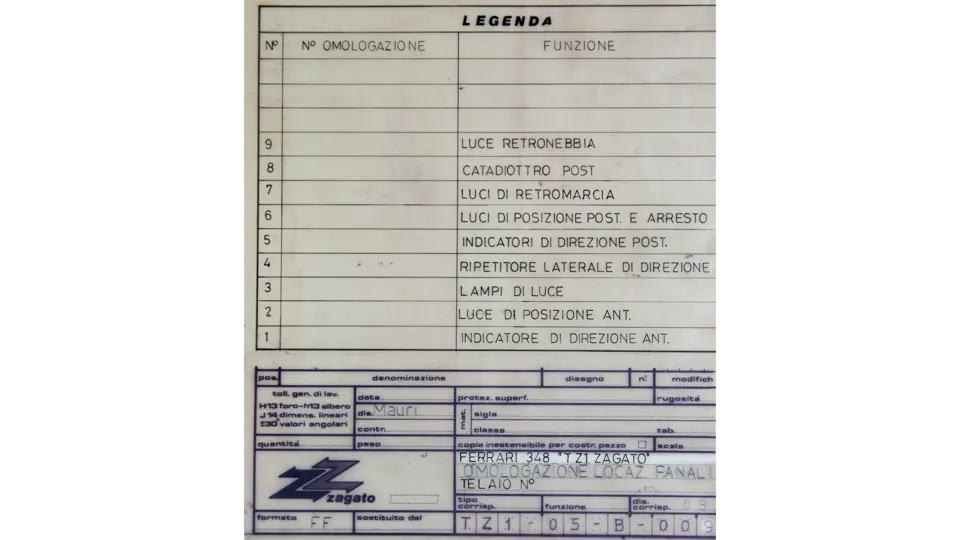 LEGENDA
Nº Nº OMOLOGAZIONE FUNZIONE
9 LUCE RETRONEBBIA
8 CATADIOTTRO POST
7 LUCI DI RETROMARCIA
6 LUCI DI POSIZIONE POST. E ARRESTO
5 INDICATORI DI DIREZIONE POST.
4 RIPETITORE LATERALE DI DIREZIONE
3 LAMPI DI LUCE
2 LUCE DI POSIZIONE ANT.
1 INDICATORE DI DIREZIONE ANT.
pos. denominazione disegno n.º modifich
toll. gen. di lav. data protez. superf. rugosità
H13 foro-h13 albero dis. Mauri mat. sigla
J14 dimens. lineari
±30 valori angolari contr. classe tab.
quantità peso copia inestensibile per costr. pezzo scala
FERRARI 348 "TZ1 ZAGATO"
OMOLOGAZIONE LOCAZ. FANALI
zagato TELAIO Nº
tipo corrisp. funzione dis. corrisp. 09
formato FF sostituito dal TZ1-05-B-009